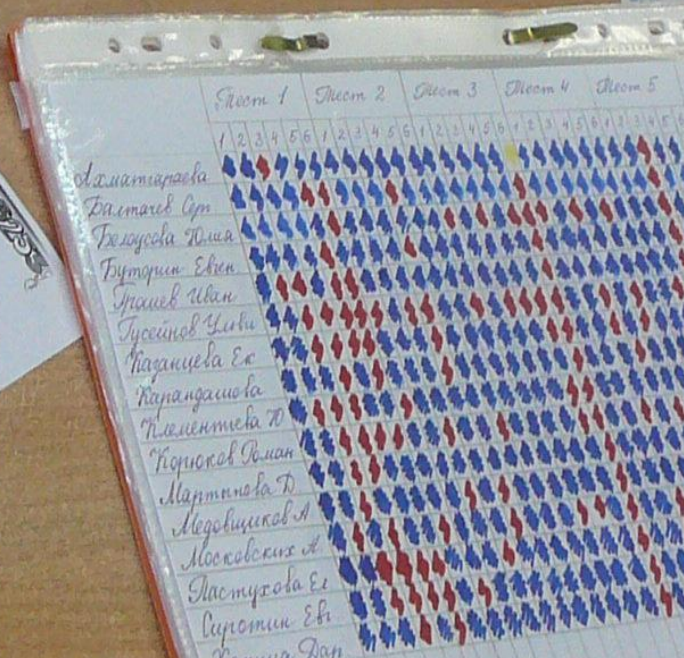 Тест 1 Тест 2 Тест 3 Тест 4 Тест 5
1 2 3 4 5 6 1 2 3 4 5 6 1 2 3 4 5 6 1 2 3 4 5 6 1 2 3 4 5 6
Ахматгараева
Балтачев Сер
Белоусова Юлия
Буторин Евген
Грошев Иван
Гусейнов Ульви
Казанцева Ек
Карандашова
Клементьева Ю
Корюков Роман
Мартынова Д
Медовщиков А
Московских А
Пастухова Ег
Сиротин Евг